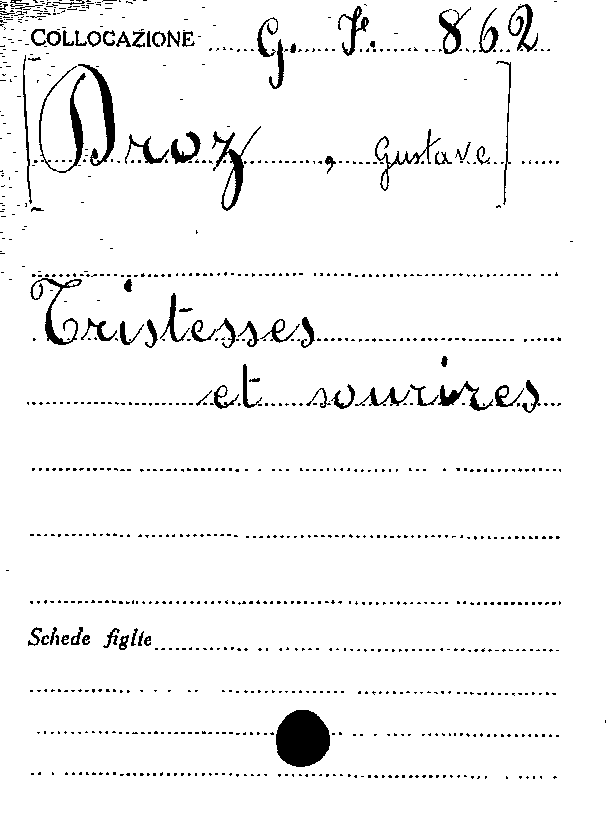 COLLOCAZIONE G. F. 862
[Droz, Gustave]
Tristesses
et sourires
Schede figlie